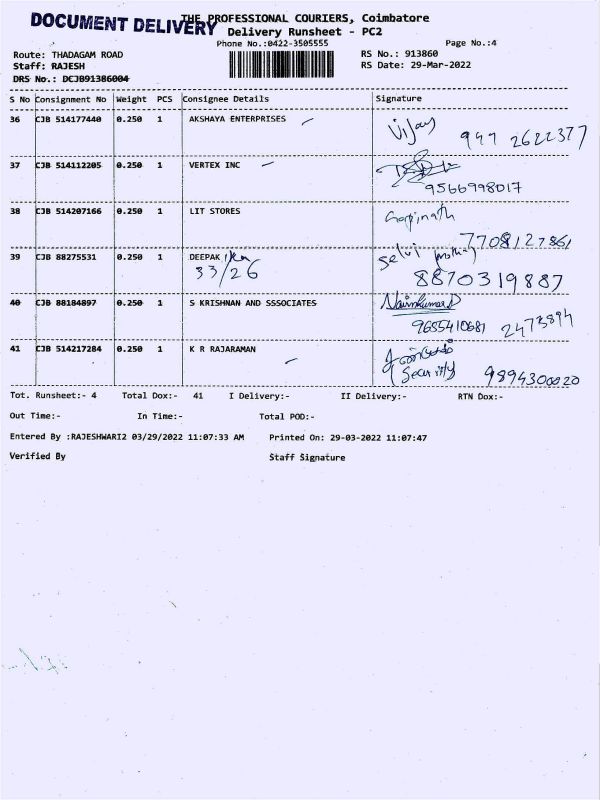 DOCUMENT DELIVERY
THE PROFESSIONAL COURIERS, Coimbatore
Delivery Runsheet - PC2
Phone No.:0422-3505555 Page No.:4
Route: THADAGAM ROAD RS No.: 913860
Staff: RAJESH RS Date: 29-Mar-2022
DRS No.: DCJB91386004
S No Consignment No Weight PCS Consignee Details Signature
36 CJB 514177440 0.250 1 AKSHAYA ENTERPRISES Vijay
37 CJB 514112205 0.250 1 VERTEX INC
9566998017
38 CJB 514207166 0.250 1 LIT STORES Gopinath
7708127861
39 CJB 88275531 0.250 1 DEEPAK Selvi
33/26 8870319887
40 CJB 88184897 0.250 1 S KRISHNAN AND SSSOCIATES
9655410681 2473894
41 CJB 514217284 0.250 1 K R RAJARAMAN
Security 9894300020
Tot. Runsheet:- 4 Total Dox:- 41 I Delivery:- II Delivery:- RTN Dox:-
Out Time:- In Time:- Total POD:-
Entered By :RAJESHWARI2 03/29/2022 11:07:33 AM Printed On: 29-03-2022 11:07:47
Verified By Staff Signature